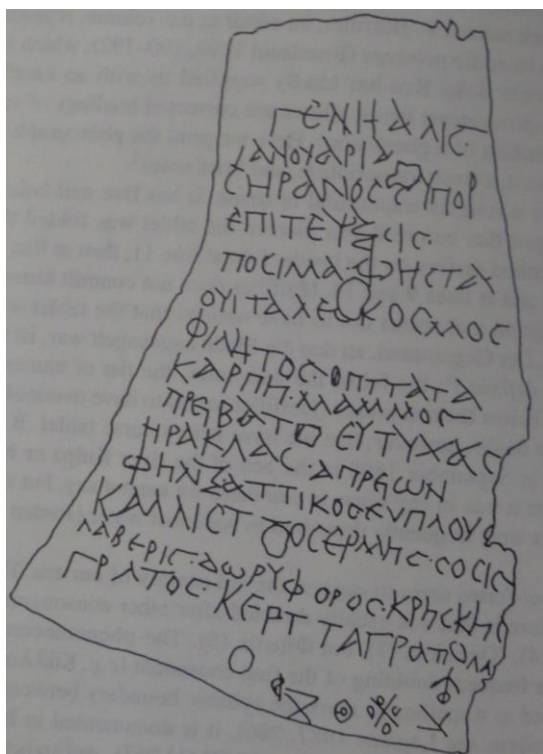 ΓΕΝΗΑΛΙϹ·
ΙΑΝΟΥΑΡΙΑ
ϹΗΡΑΝΟϹ ΥΠΟΡ
ΕΠΙΤΕΥΞΙϹ·
ΠΟϹΙΜΑ·ΦΗϹΤΑ
ΟΥΙΤΑΛΕ ΚΟϹΜΟϹ
ΦΙΛΗΤΟϹ·ΟΠΤΤΑΤΑ
ΚΑΡΠΗ·ΜΑΜΜΟϹ
ΠΡΕΒΑΤΟ ΕΥΤΥΧΑϹ
ΗΡΑΚΛΑϹ·ΑΠΡΕΩΝ
ΦΗΛΞΑΤΤΙΚΟϹΕΥΠΛΟΥϹ
ΚΑΛΛΙϹΤ ΟϹΕΡΜΗϹ·ϹΟϹΙϹ
ΛΑΒΕΡΙϹ·ΔΩΡΥΦΟΡΟϹ·ΚΡΗϹΚΗϹ
ΓΡΑΤΟϹ·ΚΕΡΤ ΤΑΓΡΑΠΟΜ